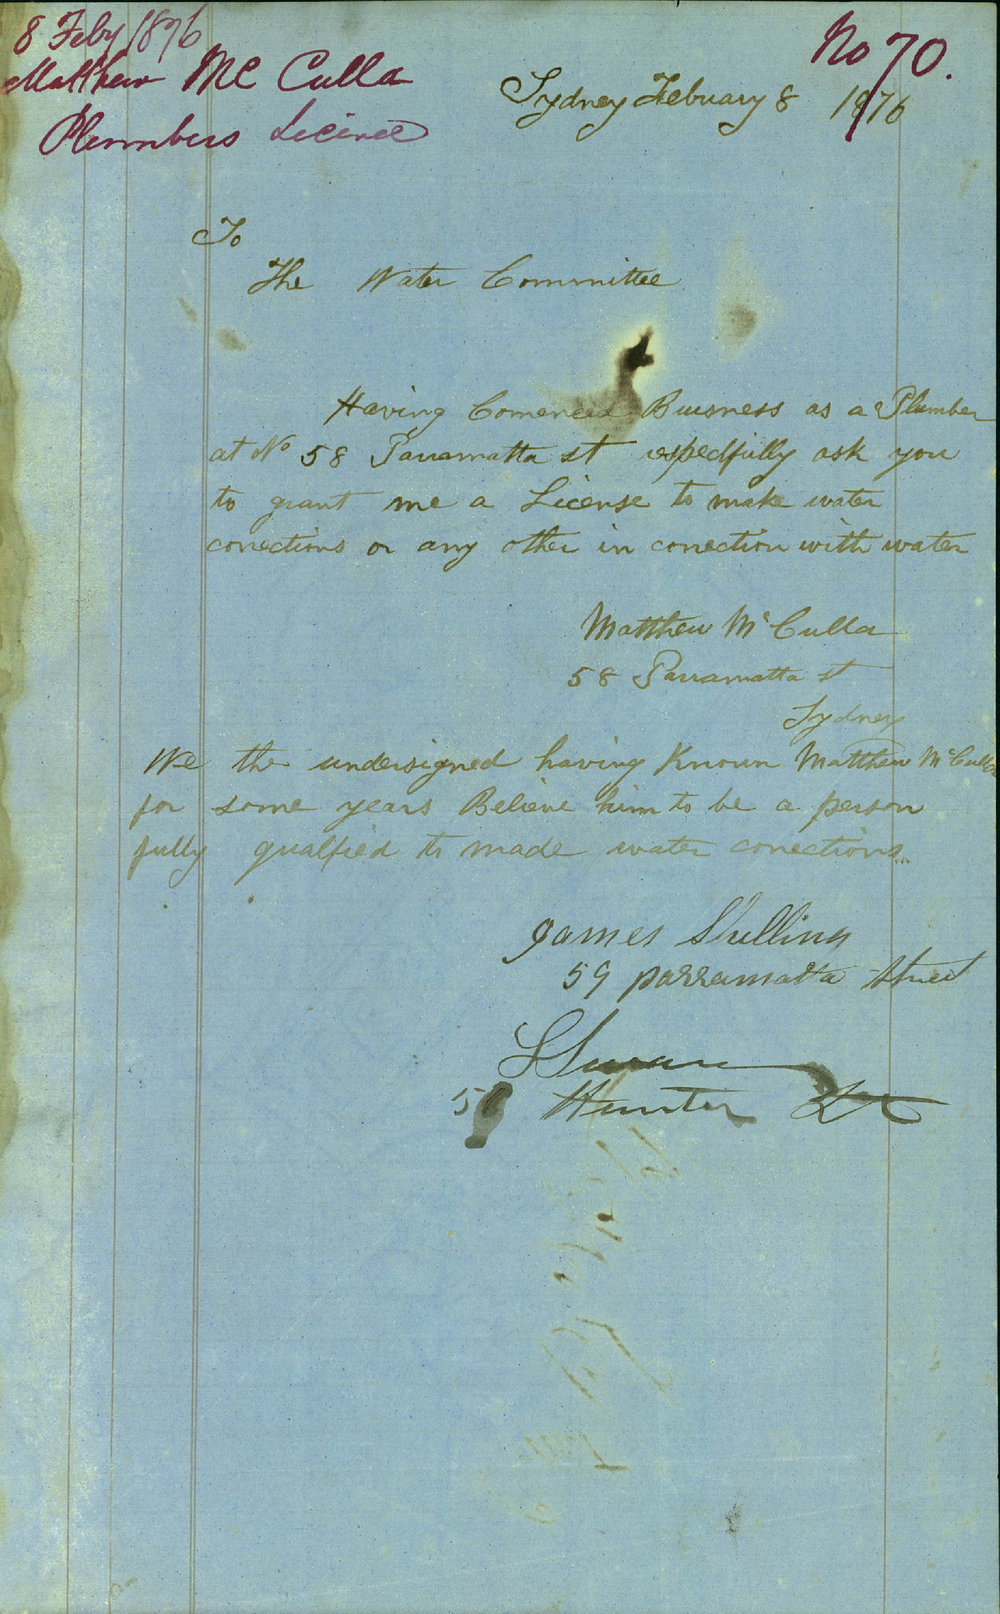 8 Feby 1876
No 70.
Matthew Mc Culla
Plumbers Licence
Sydney Febuary 8 1876
To
The Water Committee
Having Comenced Buisness as a Plumber
at No 58 Parramatta st respectfully ask you
to grant me a License to make water
conections or any other in conection with water
Matthew McCulla
58 Parramatta st
Sydney
We the undersigned having Known Matthew McCulla
for some years Believe him to be a person
fully qualfied to made water conections
James Shilling
59 parramatta street
Hunter St